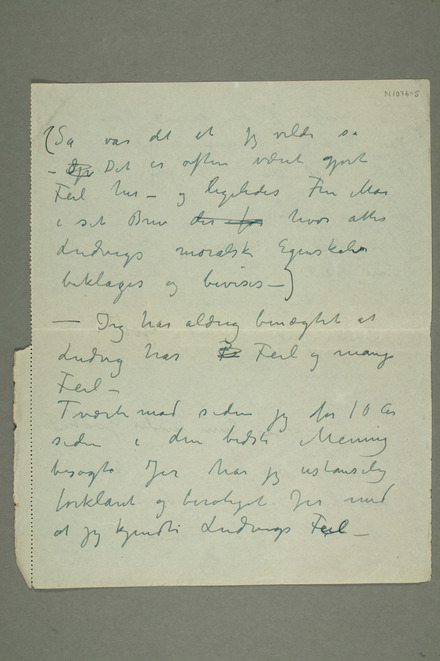 N1076-5
(Så var det at jeg vilde sa
- Det er often været gjort
Feil her - og ligeledes Fru Mas
i set Brev hvor alles
Ludvigs moralske Egenskaber
beklages og bevises -)
- Jeg har aldrig benægtet at
Ludvig har Feil og mange
Feil -
Tværtimod siden jeg for 10 Aar
siden i den bedste Mening
besøgte Jer har jeg ustanselig
forklaret og beroliget Jer med
at jeg kjendte Ludvigs Feil -